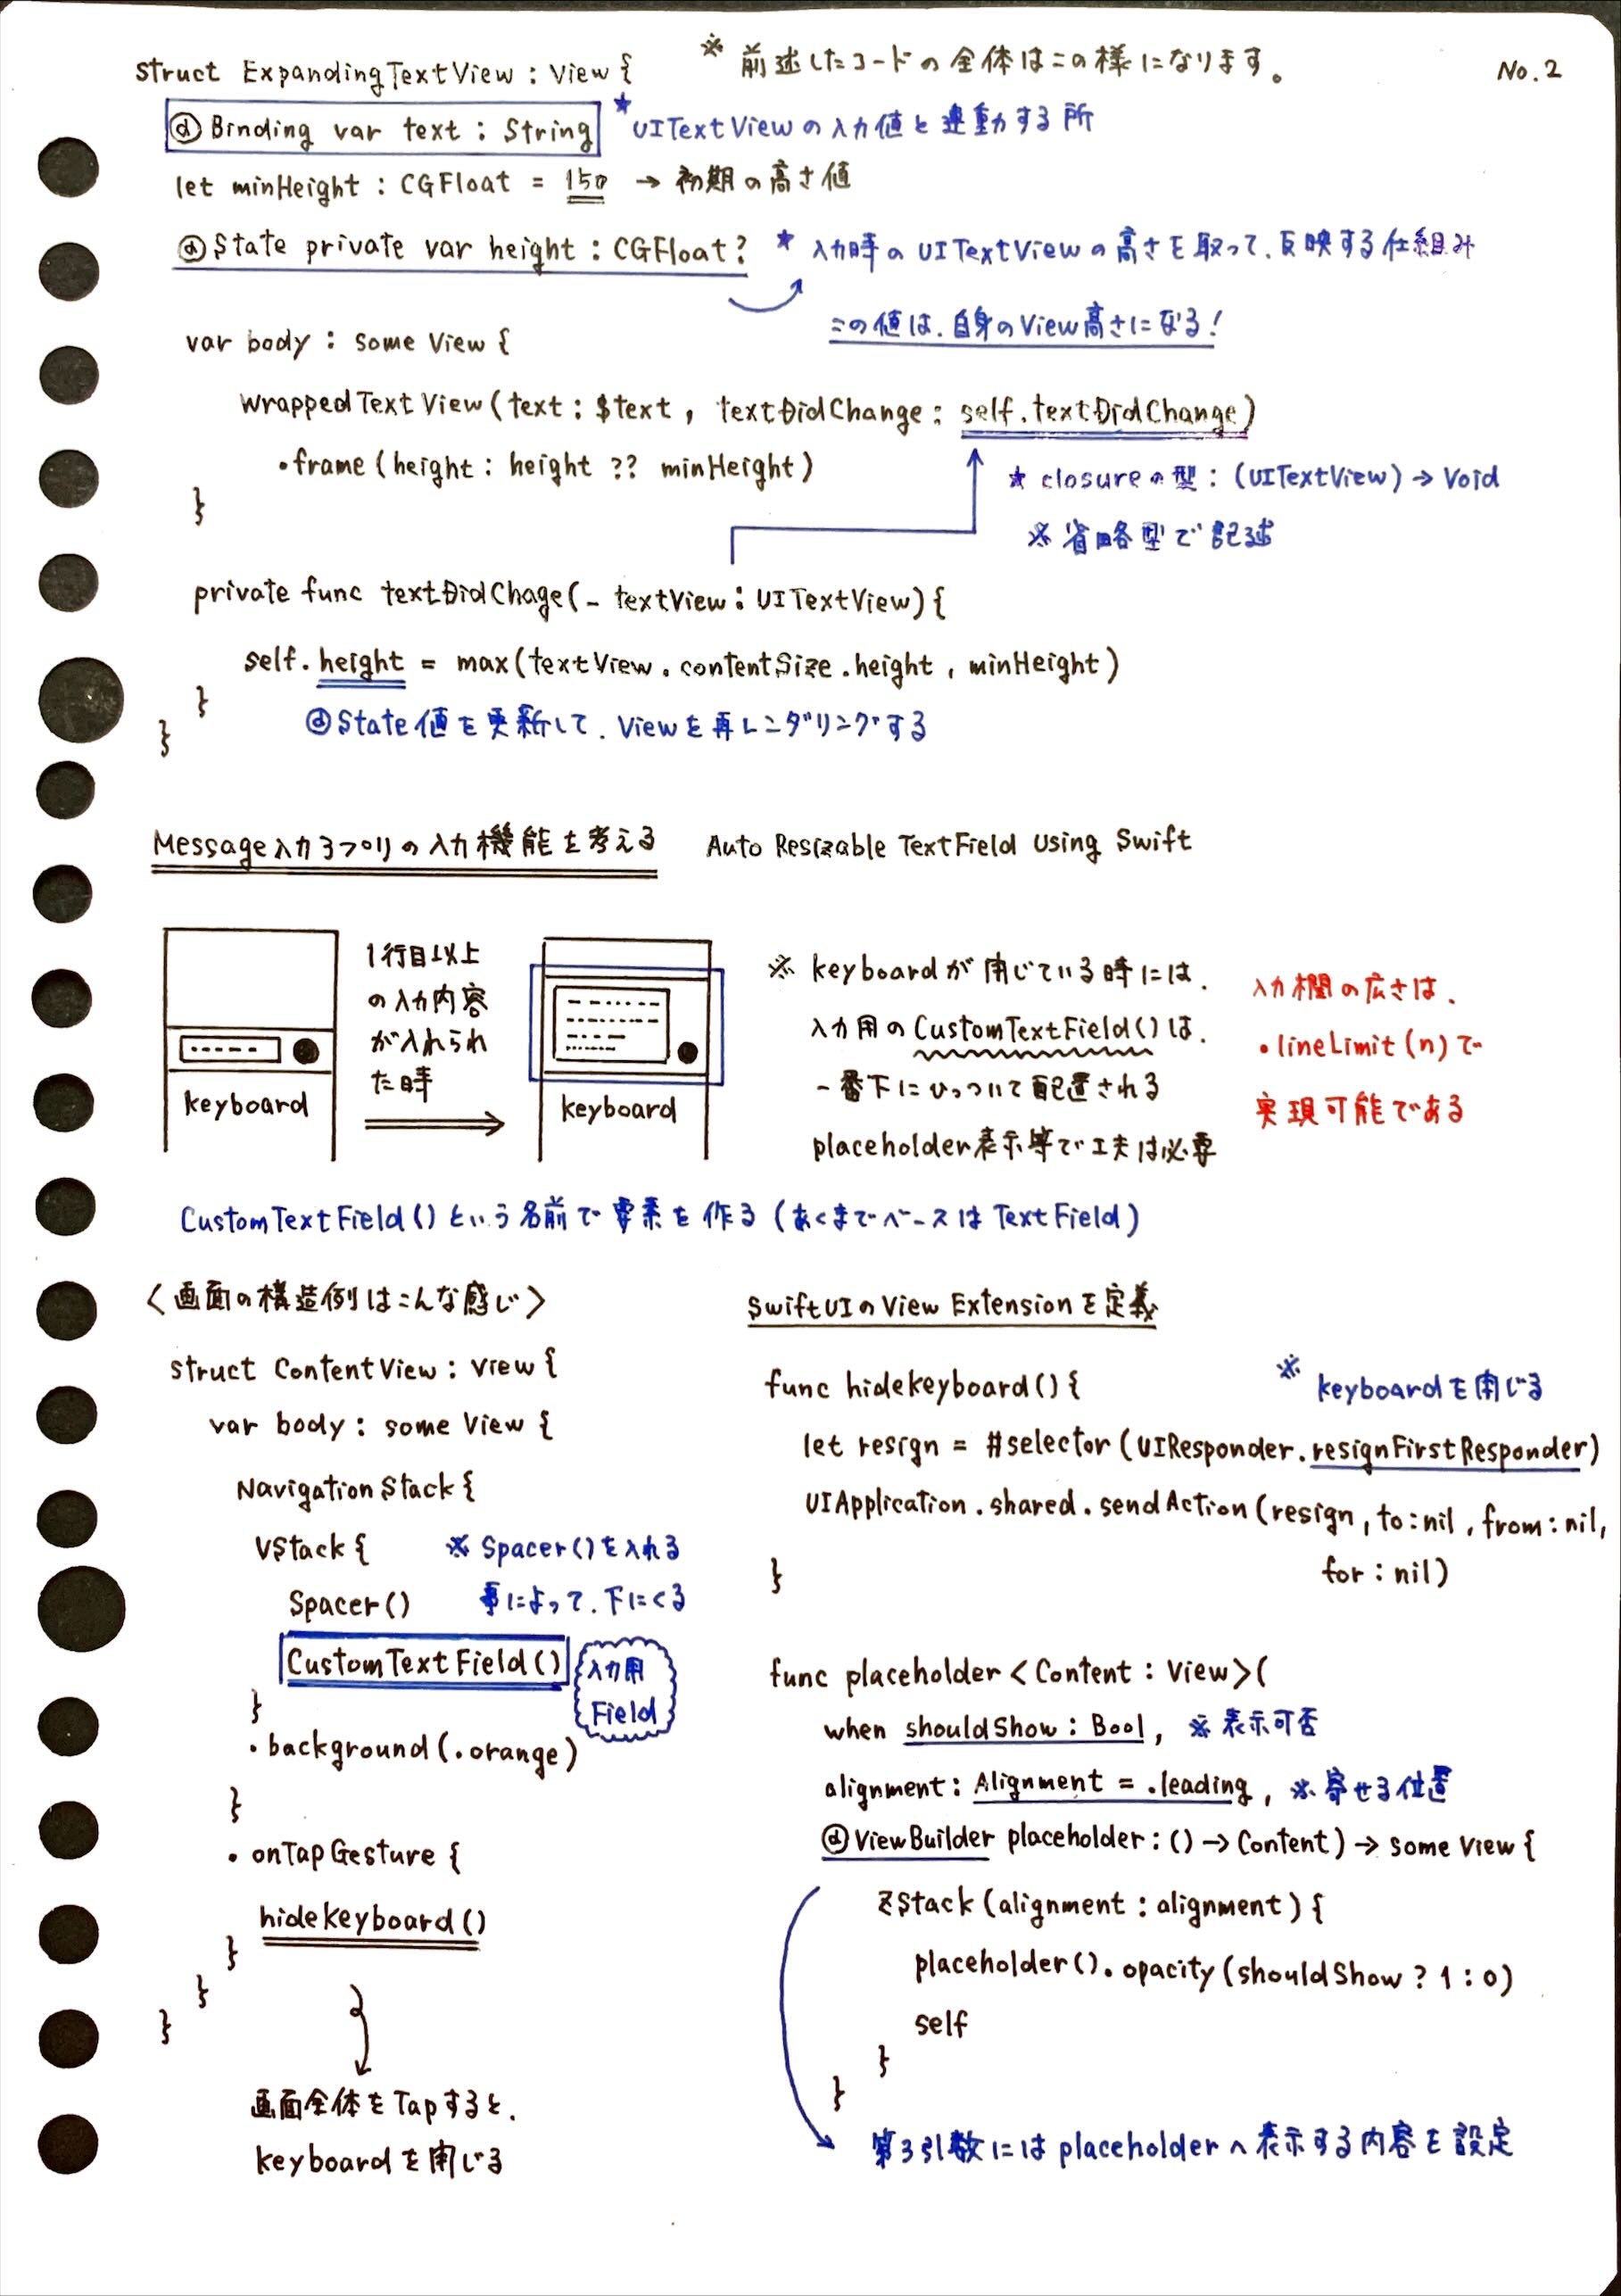 No.2
struct ExpandingTextView : View {
※ 前述したコードの全体はこの様になります。
@Binding var text : String
★ UITextViewの入力値と連動する所
let minHeight : CGFloat = 150 → 初期の高さ値
@State private var height : CGFloat?
★ 入力時のUITextViewの高さを取って、反映する仕組み
この値は、自身のView高さになる!
var body : some View {
WrappedTextView (text : $text , textDidChange : self.textDidChange)
.frame (height : height ?? minHeight)
}
★ closureの型 : (UITextView) → Void
※ 省略型で記述
private func textDidChage (_ textView : UITextView) {
self.height = max (textView.contentSize.height , minHeight)
}
@State値を更新して、Viewを再レンダリングする
}
Message入力アプリの入力機能を考える
Auto Resizable TextField Using Swift
1行目以上
の入力内容
が入れられ
た時
keyboard
keyboard
※ keyboardが閉じている時には、
入力用のCustomTextField()は、
一番下にひっついて配置される
placeholder表示等で工夫は必要
入力欄の広さは、
.lineLimit (n)で
実現可能である
CustomTextField()という名前で要素を作る (あくまでベースはTextField)
<画面の構造例はこんな感じ>
struct ContentView : View {
var body : some View {
NavigationStack {
VStack {
※ Spacer()を入れる
事によって、下にくる
Spacer()
CustomTextField()
入力用
Field
}
.background (.orange)
}
.onTapGesture {
hidekeyboard ()
}
}
}
画面全体をTapすると、
keyboardを閉じる
SwiftUIのView Extensionを定義
func hidekeyboard () {
※ keyboardを閉じる
let resign = #selector (UIResponder.resignFirstResponder)
UIApplication.shared.sendAction (resign , to : nil , from : nil,
for : nil)
}
func placeholder <Content : View> (
when shouldShow : Bool , ※ 表示可否
alignment : Alignment = .leading , ※ 寄せる位置
@ViewBuilder placeholder : () → Content) → some View {
ZStack (alignment : alignment) {
placeholder ().opacity (shouldShow ? 1 : 0)
self
}
}
第3引数にはplaceholderへ表示する内容を設定